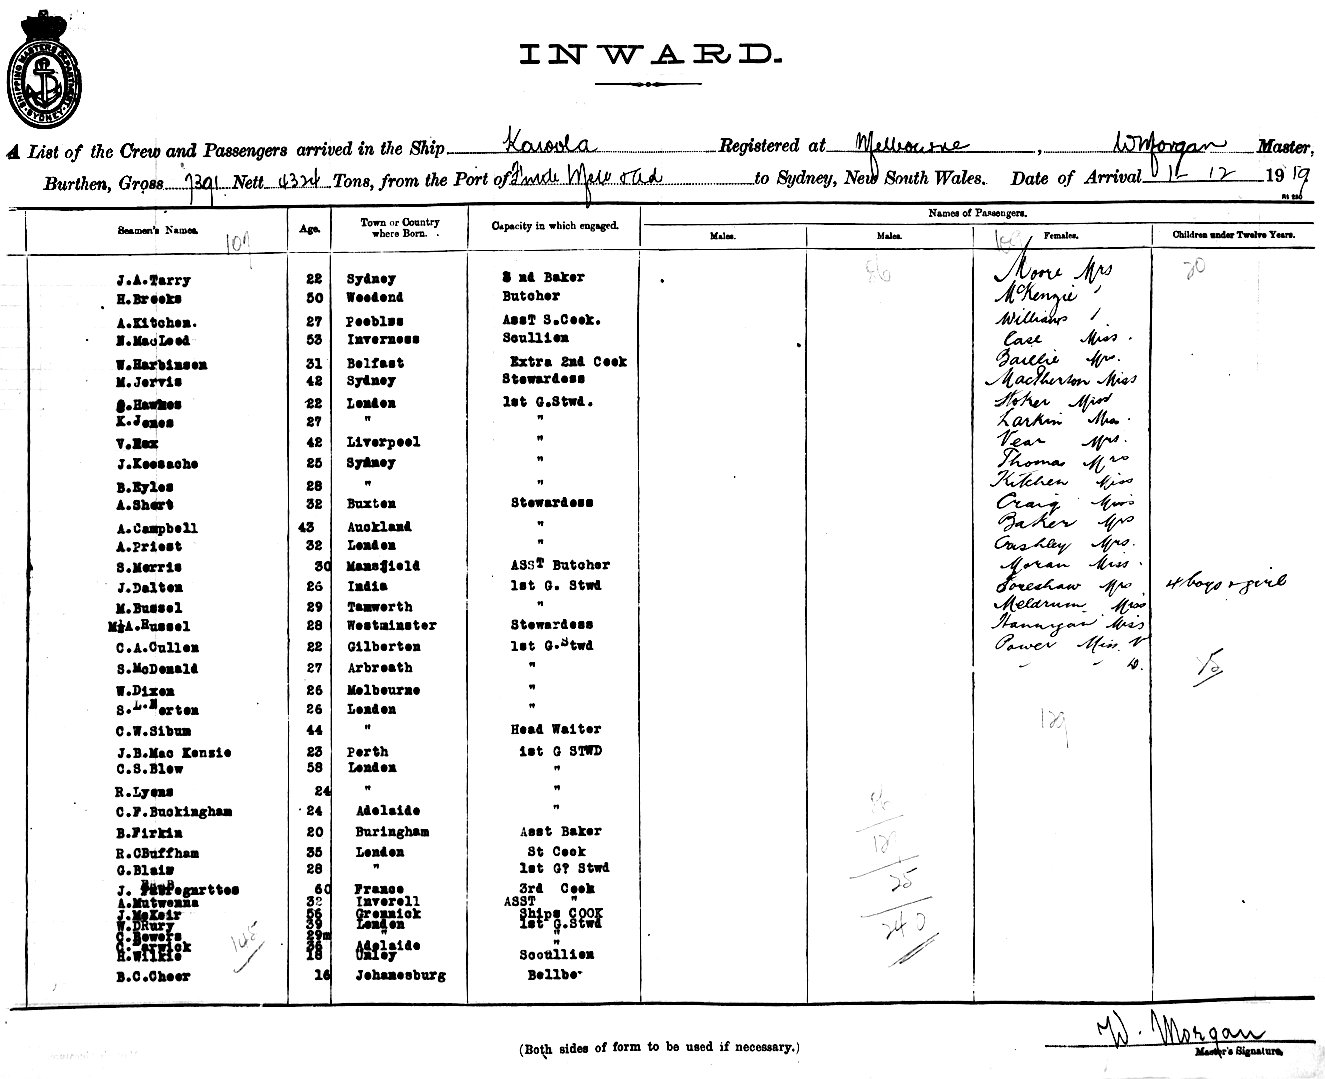 SHIPPING MASTERS DEPARTMENT SYDNEY
INWARD.
A List of the Crew and Passengers arrived in the Ship Karoola Registered at Melbourne, W Morgan Master,
Burthen, Gross 7391 Nett 4324 Tons, from the Port of to Sydney, New South Wales. Date of Arrival 12 1919
Names of Passengers.
Seamen's Names. Age. Town or Country where Born. Capacity in which engaged. Males. Males. Females. Children under Twelve Years.
107 86 20
J.A.Tarry 22 Sydney 2 nd Baker Moore Mrs
H.Brooks 50 Woodend Butcher McKenzie "
A.Kitchen. 27 Peebles AssT S.Cook. Williams "
N.MacLeod 53 Inverness Scullion Case Miss.
W.Harbinson 31 Belfast Extra 2nd Cook Baillie Mrs.
M.Jervis 42 Sydney Stewardess MacPherson Miss
Hawkes 22 London 1st G.Stwd. Stoker Miss
K.Jones 27 " " Larkin
V.Hox 42 Liverpool " Vear Mrs.
J.Keesache 25 Sydney " Thomas Mrs
B.Eyles 28 " " Kitchen Miss
A.Short 32 Buxton Stewardess Craig Miss
A.Campbell 43 Auckland " Baker Mrs
A.Priest 32 London " Cashley Mrs.
S.Morris 30 Mansfield ASST Butcher Moran Miss.
J.Dalton 26 India 1st G. Stwd Foreshaw Mrs 4 boys + girl
M.Bussel 29 Tamworth " Meldrum Miss
A.Russel 28 Westminster Stewardess Hannigan Miss
C.A.Cullen 22 Gilberton 1st G.Stwd Power Miss. V
S.McDonald 27 Arbreath " " " D.
W.Dixon 26 Melbourne "
S.L.Norton 26 London "
C.W.Sibun 44 " Head Waiter
129
J.B.Mac Kenzie 23 Perth 1st G STWD
C.S.Blow 58 London "
R.Lyons 24 " "
C.F.Buckingham 24 Adelaide "
B.Firkin 20 Buringham Asst Baker
R.CBuffham 35 London St Cook
G.Blair 28 " 1st G? Stwd
25
J. 60 France 3rd Cook
A.Mutwenna 32 Inverell ASST "
J.McKeir 56 Grennick Ships COOK
W.DRury 39 London 1st G.Stwd
240
C.Bowers 29 " "
36 Adelaide "
145
R.Wilkie 18 Unley Scoullion
B.C.Cheer 16 Johanesburg Bellbo
W. Morgan
Master's Signature.
(Both sides of form to be used if necessary.)